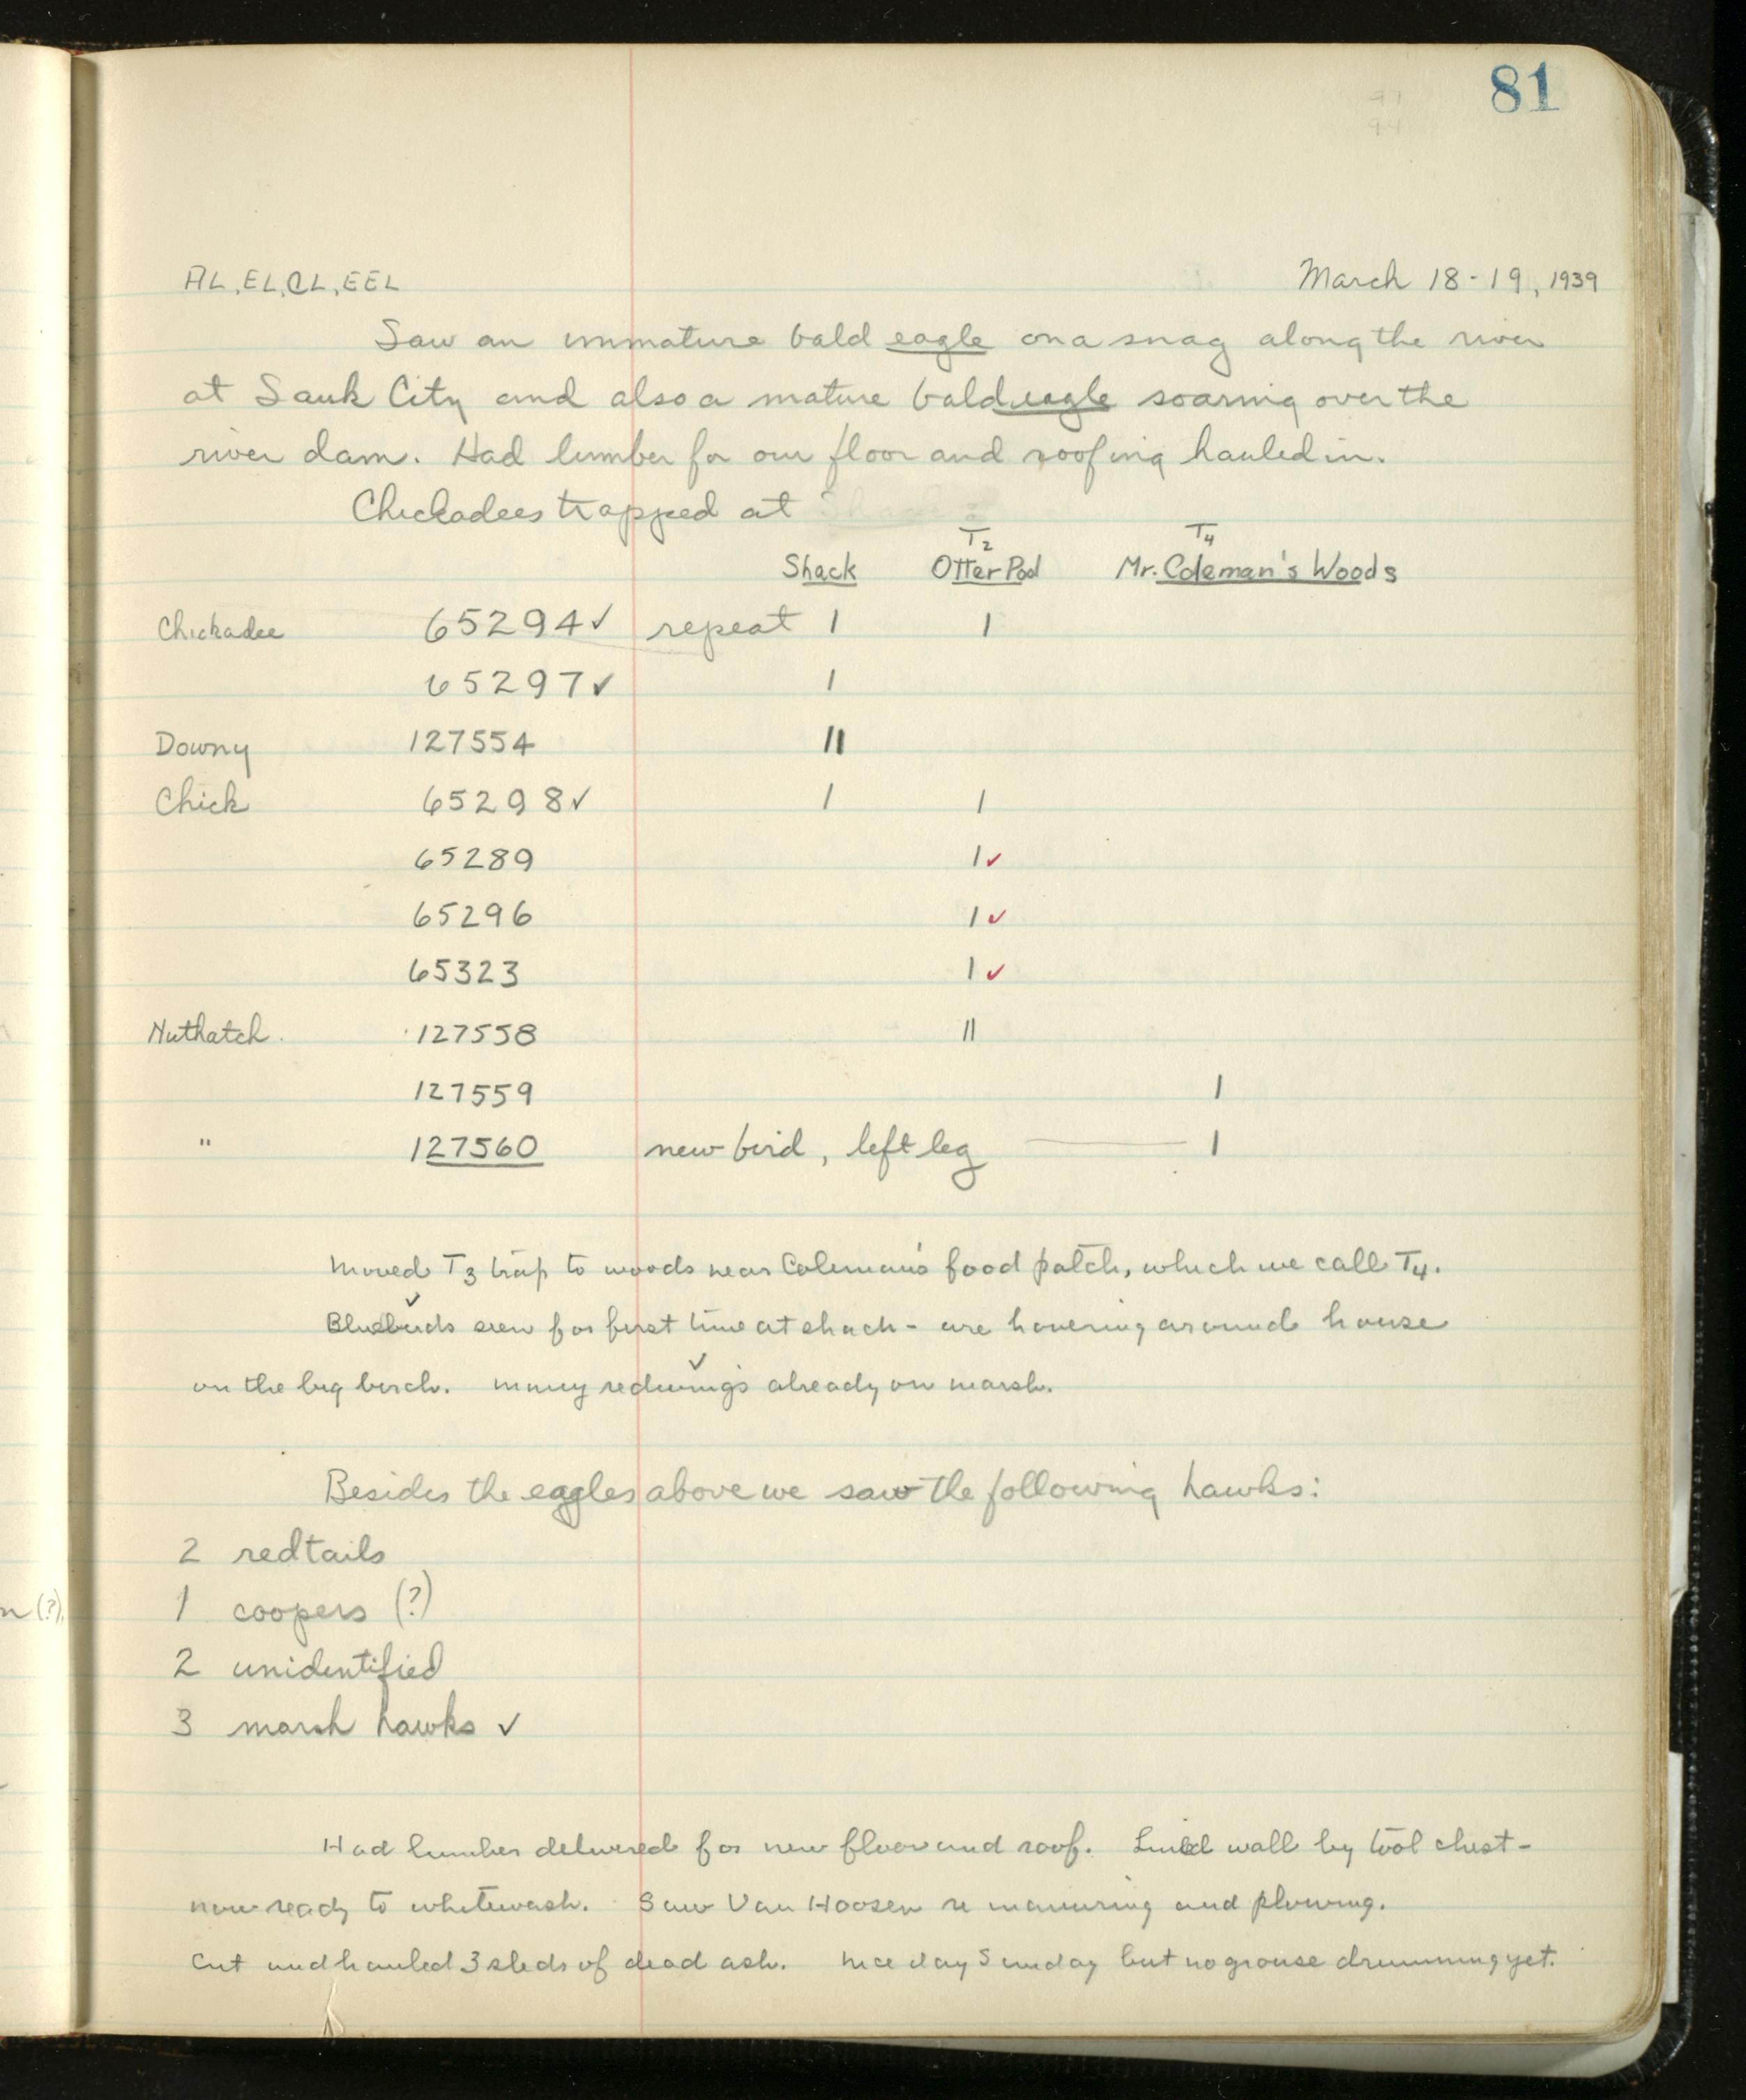 81
AL, EL, CL, EEL March 18-19, 1939
Saw an immature bald eagle on a snag along the river
at Sauk City and also a mature bald eagle soaring over the
river dam. Had lumber for our floor and roofing hauled in.
Chickadees trapped at
T2 T4
Shack Otter Pool Mr. Coleman's Woods
Chickadee 65294✓ repeat 1 1
65297✓ 1
Downy 127554 11
Chick 65298✓ 1 1
65289 1✓
65296 1✓
65323 1✓
Nuthatch 127558 11
127559 1
" 127560 new bird, left leg — 1
Moved T3 trap to woods near Coleman's food patch, which we call T4.
Bluebirds✓ seen for first time at shack - are hovering around house
on the big birch. Many redwings✓ already on marsh.
Besides the eagles above we saw the following hawks:
2 redtails
1 coopers (?)
2 unidentified
3 marsh hawks ✓
n (?),
Had lumber delivered for new floor and roof. Lined wall by tool chest -
now ready to whitewash. Saw Van Hoosen re manuring and plowing.
Cut and hauled 3 sleds of dead ash. Nice day Sunday but no grouse drumming yet.